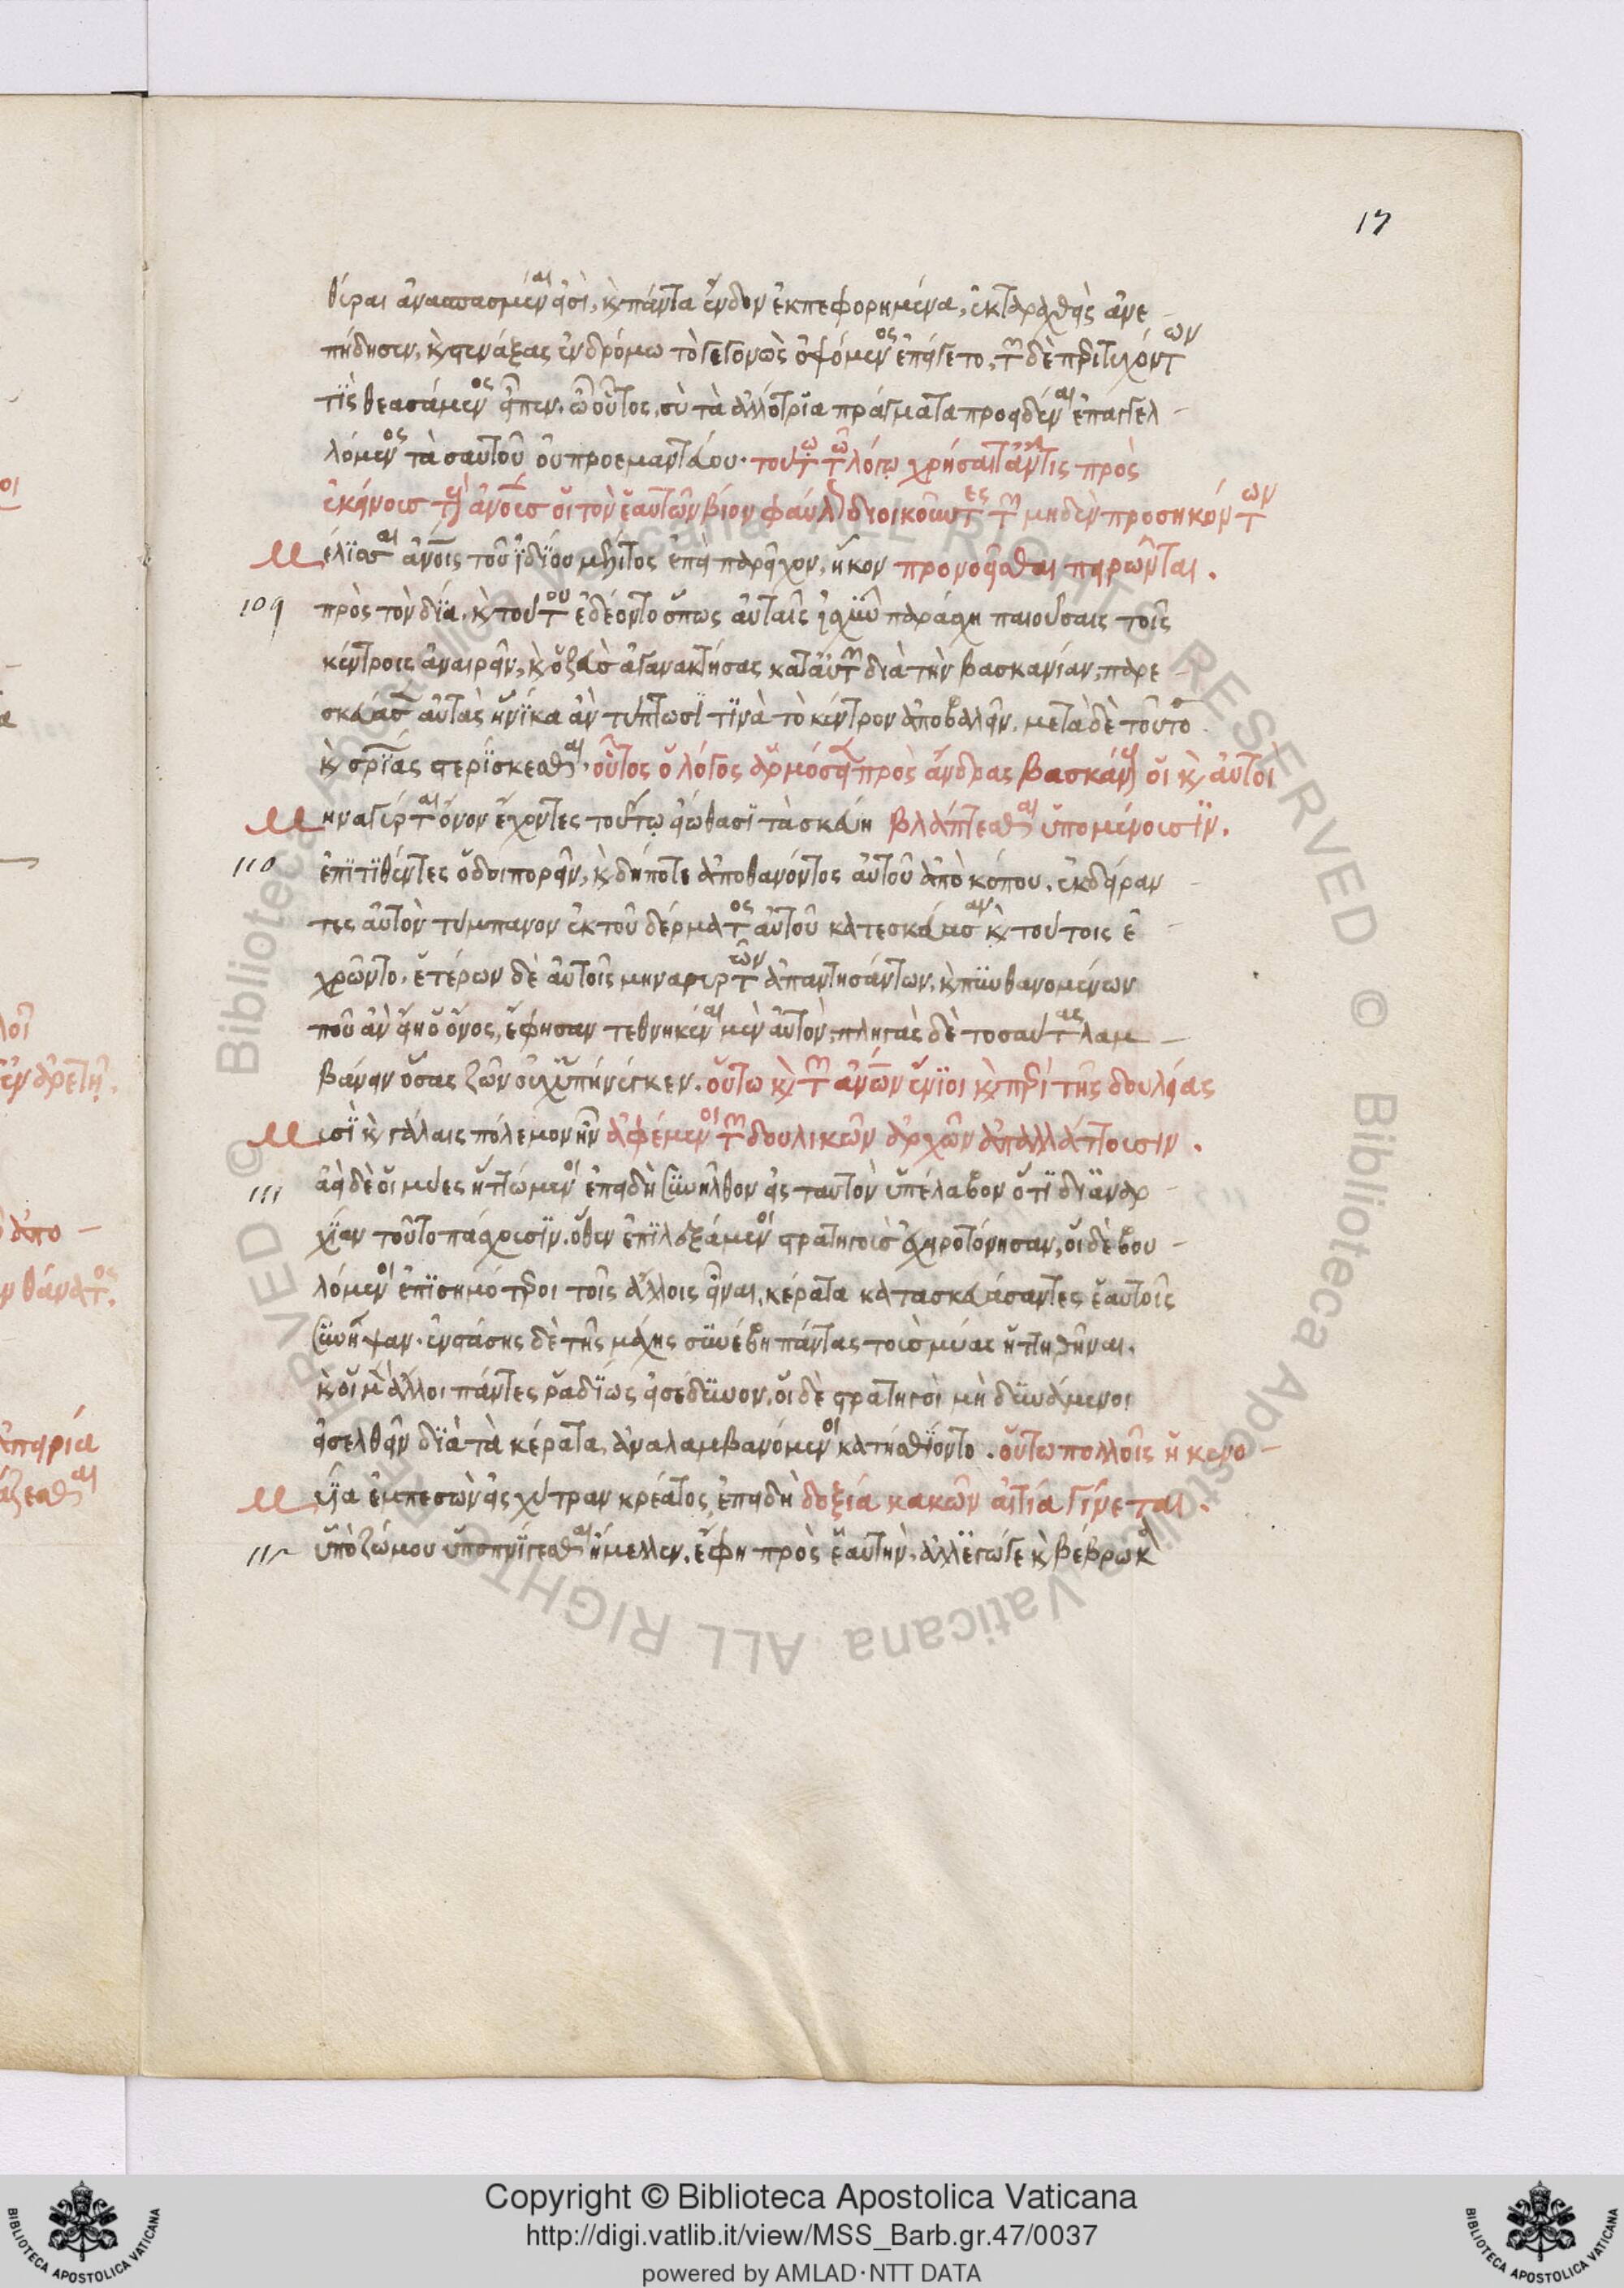 17
θύραι ἀνασπασμέναι εἰσὶ, κ πάντα ἔνδον ἐκπεφορημένα, ἐκταραχθεὶς ἀνε
πήδησεν, κ στενάξας ἐν δρόμω τὸ γεγονὼς ὀψόμενος ἐπείγετο, τῶν δὲ παρατυχόντων
τὶς θεασάμενος εἶπεν. ὦ οὗτος, σὺ τὰ ἀλλότρια πράγματα προειδέναι ἐπαγγελ
λόμενος τὰ σαυτοῦ οὐ προεμαντεύου. τούτω τῶ λόγω χρήσαιτ ἄν τις πρὸς
ἐκείνους τοὺς ἀνους οἳ τὸν ἑαυτῶν βίον φαύλως διοικοῦντες τῶν μηδὲν προσηκόντων
έλισσαι ἀνοις τοῦ ἰδίου μέλιτος ἐπεὶ παρεῖχον, ἧκον προνοεῖσθαι πειρῶνται.
109 πρὸς τὸν δία. κ τούτου ἐδέοντο ὅπως αὐταῖς ἰσχὺν παράσχη παιούσαις τοῖς
κέντροις ἀναιρεῖν, κ ὁ ζεὺς ἀγανακτήσας κατ αὐτῶν διὰ τὴν βασκανίαν, παρε
σκεύασεν αὐτὰς ἡνίκα ἂν τύπτωσί τινὰ τὸ κέντρον ἀποβαλεῖν. μετὰ δὲ τοῦτο
κ σρίας στερίσκεσθαι. οὗτος ὁ λόγος ἁρμόσειε πρὸς ἄνδρας βασκάνους οἳ κ αὐτοὶ
ηναγύρται ὄνον ἔχοντες τούτω εἰώθασι τὰ σκεύη βλάπτεσθαι ὑπομένουσιν.
110 ἐπιτιθέντες ὁδοιπορεῖν, κ δήποτε ἀποθανόντος αὐτοῦ ἀπὸ κόπου, ἐκδείραν
τες αὐτὸν τύμπανον ἐκ τοῦ δέρματος αὐτοῦ κατεσκεύασαν κ τούτοις ἐ
χρῶντο. ἑτέρων δὲ αὐτοῖς μηναγυρτῶν ἀπαντησάντων, κ πυνθανομένων
ποῦ ἂν εἴη ὁ ὄνος, ἔφησαν τεθνηκέναι μὲν αὐτὸν, πληγὰς δὲ τοσαύτας λαμ
βάνειν ὅσας ζῶν οὐχ ὑπήνεγκεν. οὕτω κ τῶν ἀνων ἔνιοι κ πρὶ τῆς δουλείας
υσὶ κ γάλαις πόλεμον ἦν ἀφέμενοι τῶν δουλικῶν ἀρχῶν ἀπαλλάττουσιν.
111 ἀεὶ δὲ οἱ μύες ἡττώμενοι ἐπειδὴ συνῆλθον εἰς ταυτὸν ὑπέλαβον ὅτι δι ἀναρ
χίαν τοῦτο πάσχουσιν. ὅθεν ἐπιλεξάμενοι στρατηγοὺς ἐχειροτόνησαν, οἱ δὲ βου
λόμενοι ἐπισημότεροι τοῖς ἄλλοις εἶναι, κέρατα κατασκευάσαντες ἑαυτοῖς
συνῆψαν. ἐνστάσης δὲ τῆς μάχης συνέβη πάντας τοὺς μύας ἡττηθῆναι.
κ οἱ μὲν ἄλλοι πάντες ῥαδίως εἰσέδυνον, οἱ δὲ στρατηγοὶ μὴ δυνάμενοι
εἰσελθεῖν διὰ τὰ κέρατα, ἀναλαμβανόμενοι κατησθίοντο. οὕτω πολλοῖς ἡ κενο
υῖα ἐμπεσὼν εἰς χύτραν κρέατος, ἐπειδὴ δοξία κακῶν αἰτία γίνεται.
112 ὑπὸ ζώμου ὑποπνίγεσθαι ἤμελλεν, ἔφη πρὸς ἑαυτὴν. ἀλλ ἔγωγε κ βέβρωκα
Copyright © Biblioteca Apostolica Vaticana
http://digi.vatlib.it/view/MSS_Barb.gr.47/0037
powered by AMLAD·NTT DATA